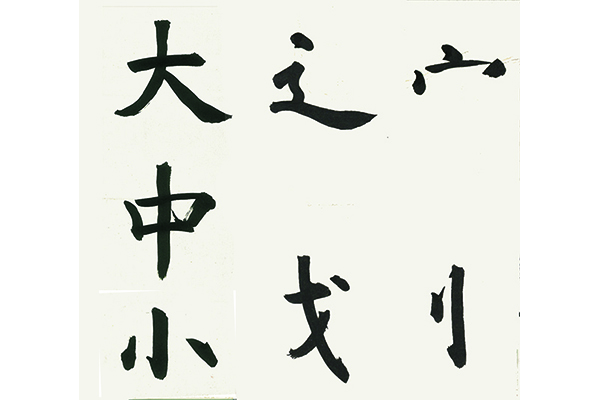 大中小
辶戈
宀刂